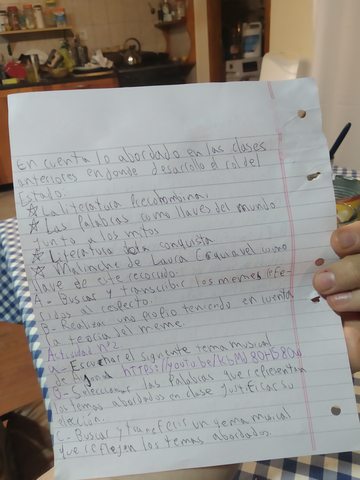 en cuenta lo abordado en las clases
anteriores en donde desarrollo el rol del
Estado.
☆ La literatura Precolombina.
☆ Las palabras como llaves del mundo
junto a los mitos
☆ Literatura de la conquista
☆ Malinche de Laura Esquivel como
llave de este recorrido.
A- Buscar y transcribir los memes refe-
ridos al respecto.
B- Realizar uno propio teniendo en cuenta
la teoría del meme.
Actividad n°2.
A- Escuchar el siguiente tema musical
de https://youtu.be/
B- Seleccionar las palabras que representan
los temas abordados en clase justificar su
elección.
C- Buscar y transferir un tema musical
que reflejen los temas abordados.